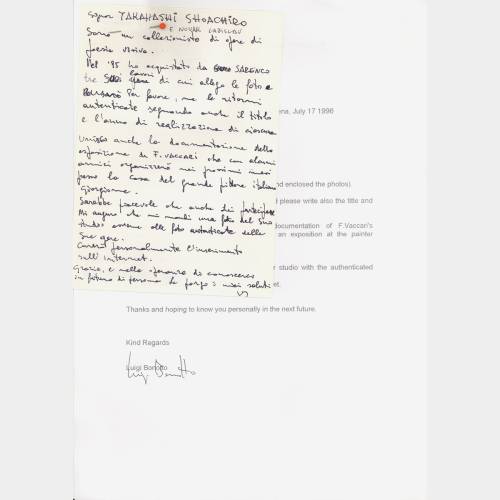 Signor TAKAHASHI SHOACHIRO
E NOVAK LADISLAV
Sono un collezionista di opere di
poesia visiva.
Nel '95 ho acquistato da SARENCO
tre lavori di cui allego le foto e
Per favore, me le ritorni
autenticate segnando anche il titolo
e l'anno di realizzazione di ciascuna
Unisco anche la documentazione della
esposizione di F. VACCARI che con alcuni
amici organizzerò nei prossimi mesi
presso la casa del grande pittore italiano
Giorgione.
Sarebbe piacevole che anche Lei partecipasse
Mi auguro che mi mandi una foto del suo
studio assieme alle foto autenticate delle
sue opere.
Curerò personalmente l'inserimento
sull'Internet.
Grazie, e nella speranza di conoscerci
in futuro di persona Le porgo i miei saluti
ena, July 17 1996
nd enclosed the photos).
please write also the title and
documentation of F.Vaccari's
an exposition at the painter
r studio with the authenticated
et.
Thanks and hoping to know you personally in the next future.
Kind Regards
Luigi Bonotto
Luigi Bonotto